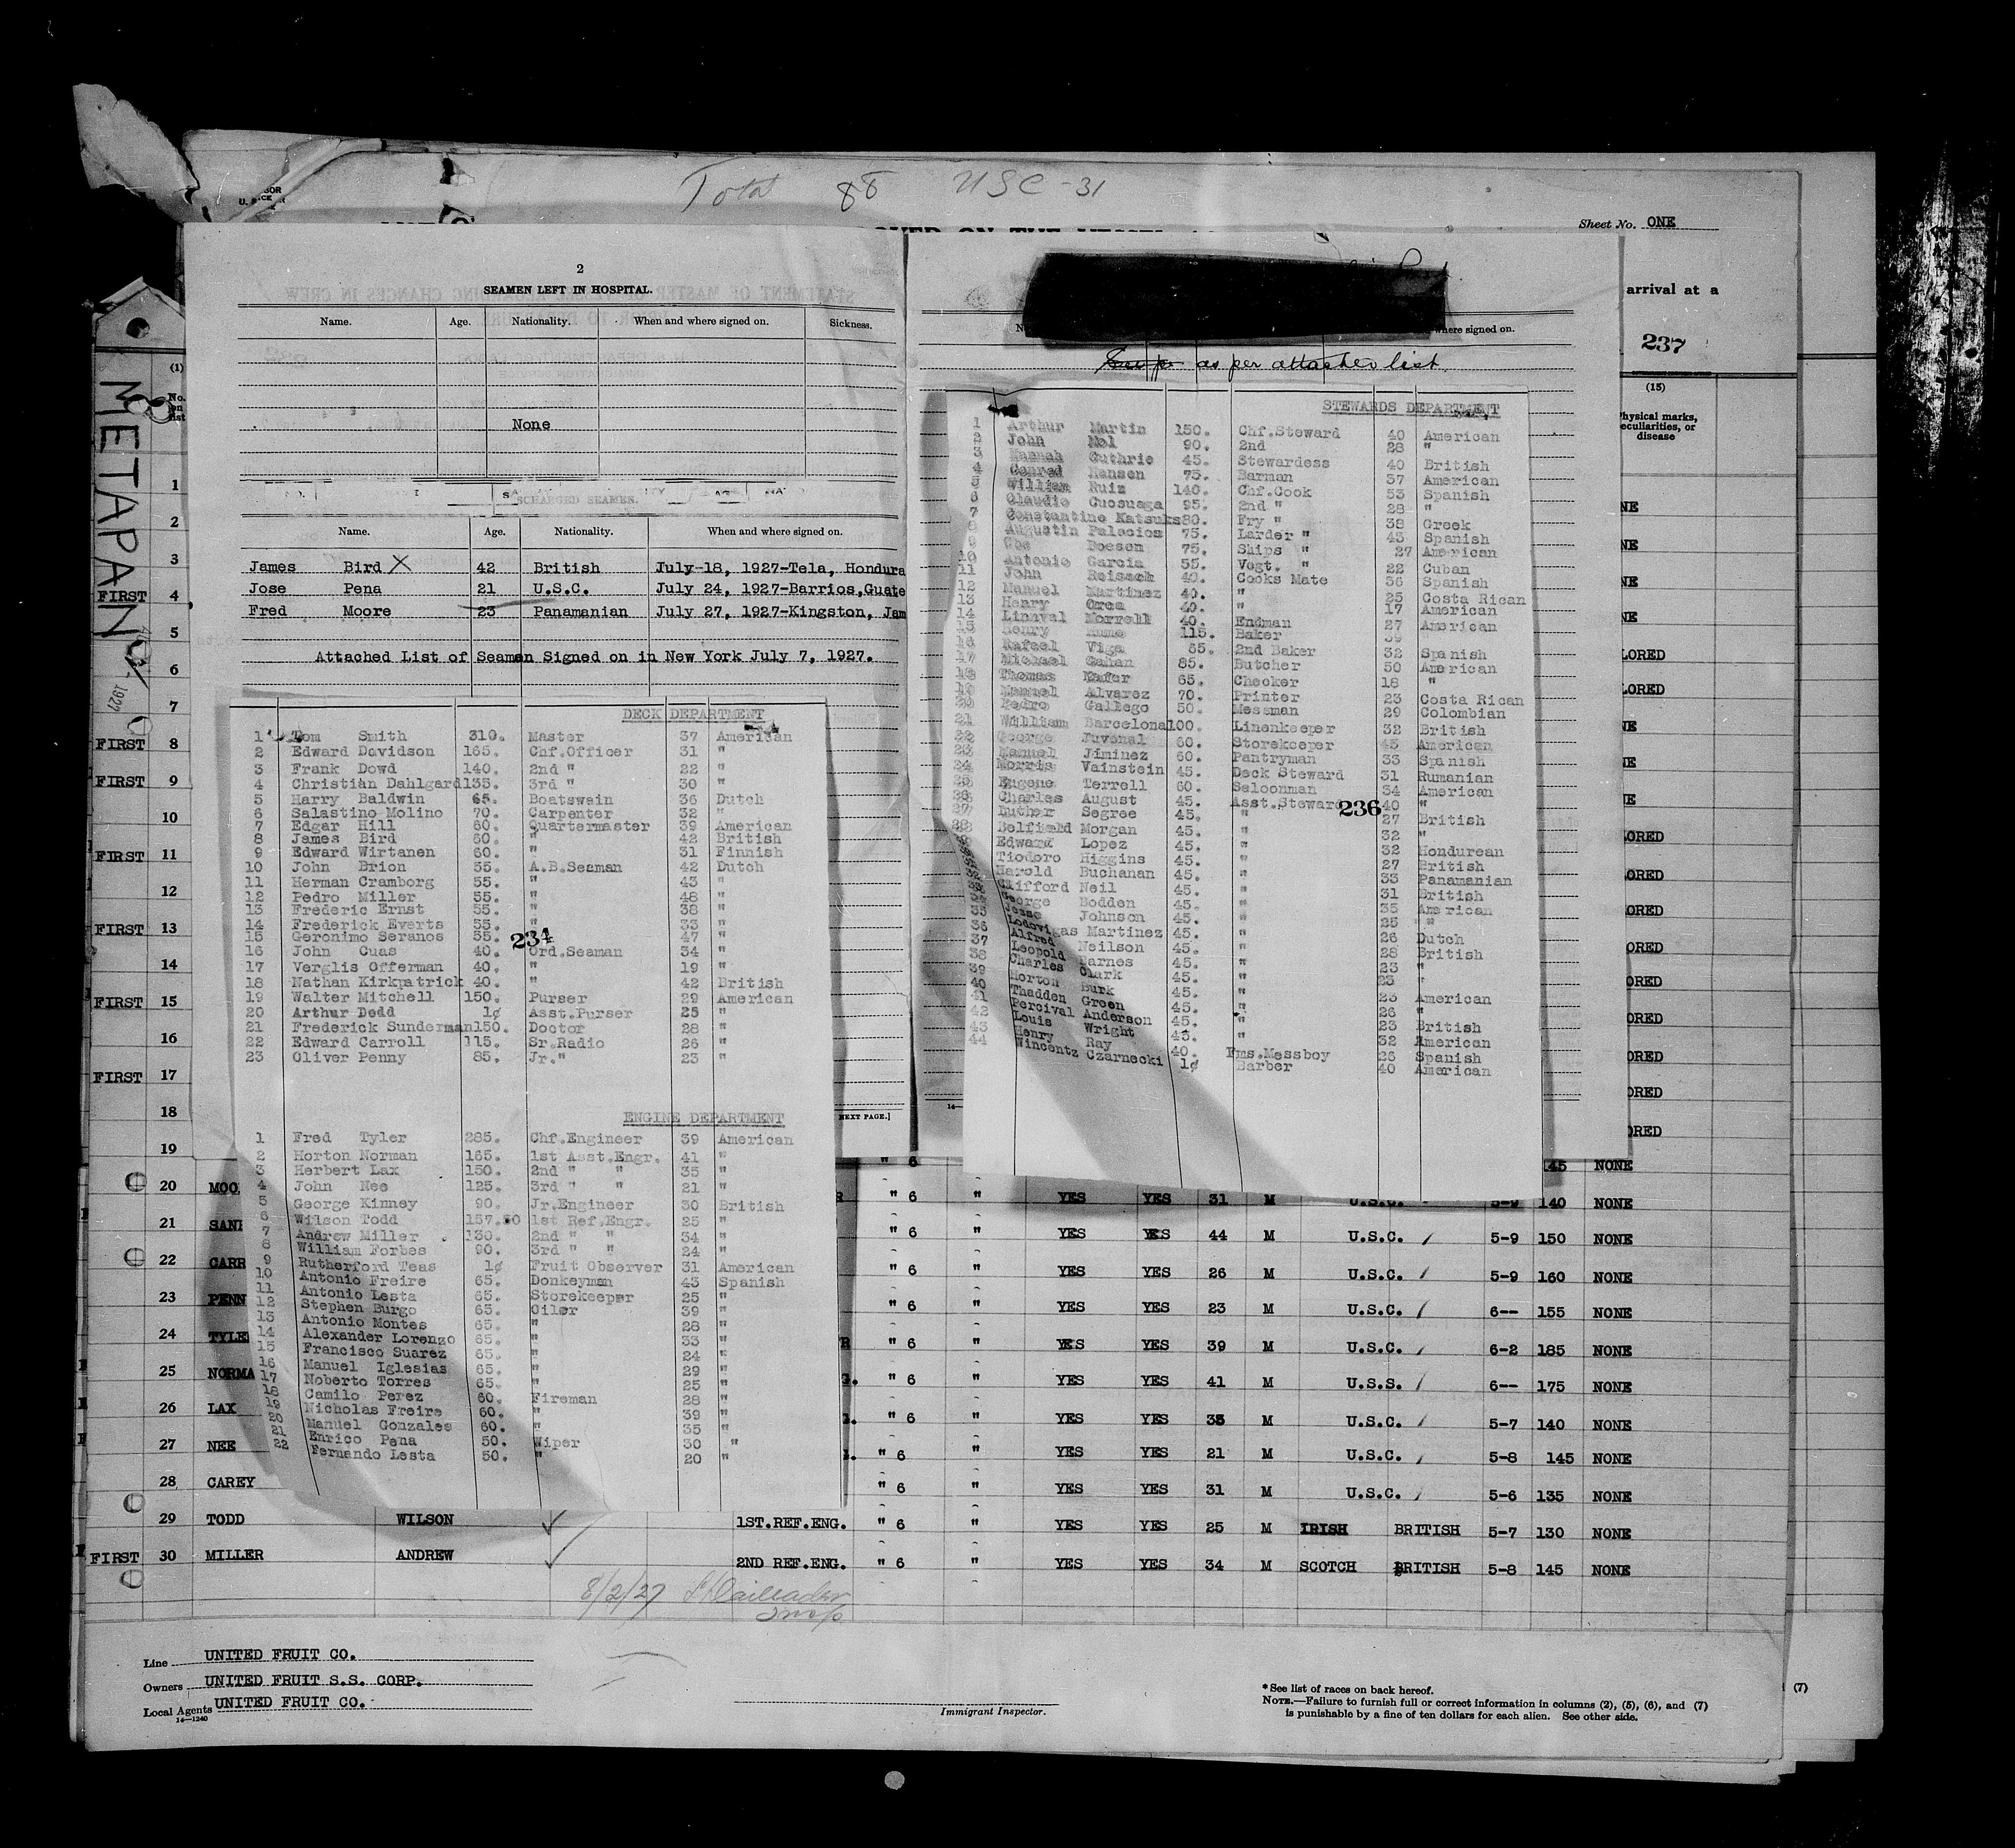 Total 88 USC-31
Sheet No. ONE
arrival at a
237
(15)
Physical marks, peculiarities, or disease
METAPAN
1927
2
SEAMEN LEFT IN HOSPITAL.
Name. Age. Nationality. When and where signed on. Sickness.
None
SCHARGED SEAMEN.
Name. Age. Nationality. When and where signed on.
James Bird X 42 British July-18, 1927-Tela, Hondura
Jose Pena 21 U.S.C. July 24, 1927-Barrios,Guate
Fred Moore 23 Panamanian July 27, 1927-Kingston, Jam
Attached List of Seamen Signed on in New York July 7, 1927.
DECK DEPARTMENT
1 Tom Smith 310. Master 37 American
2 Edward Davidson 165. Chf.Officer 31 "
3 Frank Dowd 140. 2nd " 22 "
4 Christian Dahlgard 135. 3rd " 30 "
5 Harry Baldwin 65. Boatswain 36 Dutch
6 Salastino Molino 70. Carpenter 32 "
7 Edgar Hill 60. Quartermaster 39 American
8 James Bird 60. " 42 British
9 Edward Wirtanen 60. " 31 Finnish
10 John Brion 55. A.B.Seaman 42 Dutch
11 Herman Cramborg 55. " 43 "
12 Pedro Miller 55. " 48 "
13 Frederic Ernst 55. " 38 "
14 Frederick Everts 55. " 33 "
15 Geronimo Seranos 55. " 47 "
234
16 John Cuas 40. Ord.Seaman 34 "
17 Verglis Offerman 40. " 19 "
18 Nathan Kirkpatrick 40. " 42 British
19 Walter Mitchell 150. Purser 29 American
20 Arthur Dodd 1¢ Asst.Purser 25 "
21 Frederick Sunderman 150. Doctor 28 "
22 Edward Carroll 115. Sr.Radio 26 "
23 Oliver Penny 85. Jr." 23 "
ENGINE DEPARTMENT
1 Fred Tyler 285. Chf.Engineer 39 American
2 Horton Norman 165. 1st Asst.Engr. 41 "
3 Herbert Lax 150. 2nd " " 35 "
4 John Nee 125. 3rd " " 21 "
5 George Kinney 90. Jr.Engineer 30 British
6 Wilson Todd 157.50 1st Ref.Engr. 25 "
7 Andrew Miller 130. 2nd " " 34 "
8 William Forbes 90. 3rd " " 24 "
9 Rutherford Teas 1¢ Fruit Observer 31 American
10 Antonio Freire 65. Donkeyman 43 Spanish
11 Antonio Lesta 65. Storekeeper 25 "
12 Stephen Burgo 65. Oiler 39 "
13 Antonio Montes 65. " 28 "
14 Alexander Lorenzo 65. " 33 "
15 Francisco Suarez 65. " 24 "
16 Manuel Iglesias 65. " 29 "
17 Noberto Torres 65. " 25 "
18 Camilo Perez 60. Fireman 28 "
19 Nicholas Freire 60. " 39 "
20 Manuel Gonzales 60. " 35 "
21 Enrico Pena 50. Wiper 30 "
22 Fernando Lesta 50. " 20 "
where signed on.
as per attached list
STEWARDS DEPARTMENT
1 Arthur Martin 150. Chf.Steward 40 American
2 John Mol 90. 2nd 28 "
3 Hannah Guthrie 45. Stewardess 40 British
4 Conrad Hansen 75. Barman 37 American
5 William Ruiz 140. Chf.Cook 53 Spanish
6 Claudio Cuosuaga 95. 2nd " 28 "
7 Constantine Katsuks 80. Fry " 38 Greek
8 Augustin Palacios 75. Larder " 43 Spanish
9 Boesen 75. Ships " 27 American
10 Antonio Garcia 55. Vegt. " 22 Cuban
11 John Reisack 40. Cooks Mate 36 Spanish
12 Manuel Martinez 40. " 25 Costa Rican
13 Henry 40. " 17 American
14 Linaval Morrell 40. Endman 27 American
15 Henry 115. Baker 39
16 Rafael Viga 85. 2nd Baker 32 Spanish
17 Michael Gahan 85. Butcher 50 American
18 Thomas Kafer 65. Checker 18 "
19 Manuel Alvarez 70. Printer 23 Costa Rican
20 Pedro Gallego 50. Messman 29 Colombian
21 William Barcelona 100. Linenkeeper 32 British
22 George Juvenal 60. Storekeeper 45 American
23 Manuel Jiminez 60. Pantryman 33 Spanish
24 Morris Vainstein 45. Deck Steward 31 Rumanian
25 Eugene Terrell 60. Saloonman 34 American
26 Charles August 45. Asst.Steward 40 "
236
27 Luther Segree 45. " 27 British
28 Belfield Morgan 45. " 32 "
Edward Lopez 45. " 32 Hondurean
Tiodoro Higgins 45. " 27 British
Harold Buchanan 45. " 33 Panamanian
Clifford Neil 45. " 31 British
George Bodden 45. " 35 American
Jesse Johnson 45. " 25 "
35 Lodovigas Martinez 45. " 26 Dutch
36 Alfred Neilson 45. " 28 British
37 Leopold Barnes 45. " 23 "
38 Charles Clark 45. " 23 "
39 Horton Burk 45. " 23 American
40 Thadden Green 45. " 26 "
41 Percival Anderson 45. " 23 British
42 Louis Wright 45. " 32 American
43 Henry Ray 40. Fms.Messboy 26 Spanish
44 Wincentz Czarnecki 1¢ Barber 40 American
NEXT PAGE.]
145 NONE
20 MOO " 6 " YES YES 31 M U.S.C. 5-9 140 NONE
21 SAN " 6 " YES YES 44 M U.S.C. 5-9 150 NONE
22 CARR " 6 " YES YES 26 M U.S.C. 5-9 160 NONE
23 PENN " 6 " YES YES 23 M U.S.C. 6-- 155 NONE
24 TYLE " 6 " YES YES 39 M U.S.C. 6-2 185 NONE
25 NORMA " 6 " YES YES 41 M U.S.S. 6-- 175 NONE
26 LAX " 6 " YES YES 35 M U.S.C. 5-7 140 NONE
27 NEE " 6 " YES YES 21 M U.S.C. 5-8 145 NONE
28 CAREY " 6 " YES YES 31 M U.S.C. 5-6 135 NONE
29 TODD WILSON 1ST.REF.ENG. " 6 " YES YES 25 M IRISH BRITISH 5-7 130 NONE
FIRST 30 MILLER ANDREW 2ND REF.ENG. " 6 " YES YES 34 M SCOTCH BRITISH 5-8 145 NONE
8/2/27
Line UNITED FRUIT CO.
Owners UNITED FRUIT S.S. CORP.
Local Agents UNITED FRUIT CO.
14-1240
Immigrant Inspector.
*See list of races on back hereof.
NOTE.—Failure to furnish full or correct information in columns (2), (5), (6), and (7)
is punishable by a fine of ten dollars for each alien. See other side.
(7)